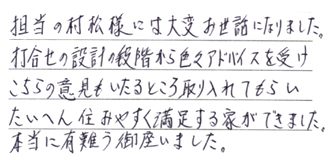 担当の村松様には大変お世話になりました。
打合せの設計の段階から色々アドバイスを受け
こちらの意見もいたるところ取り入れてもらい
たいへん住みやすく満足する家ができました。
本当に有難う御座いました。